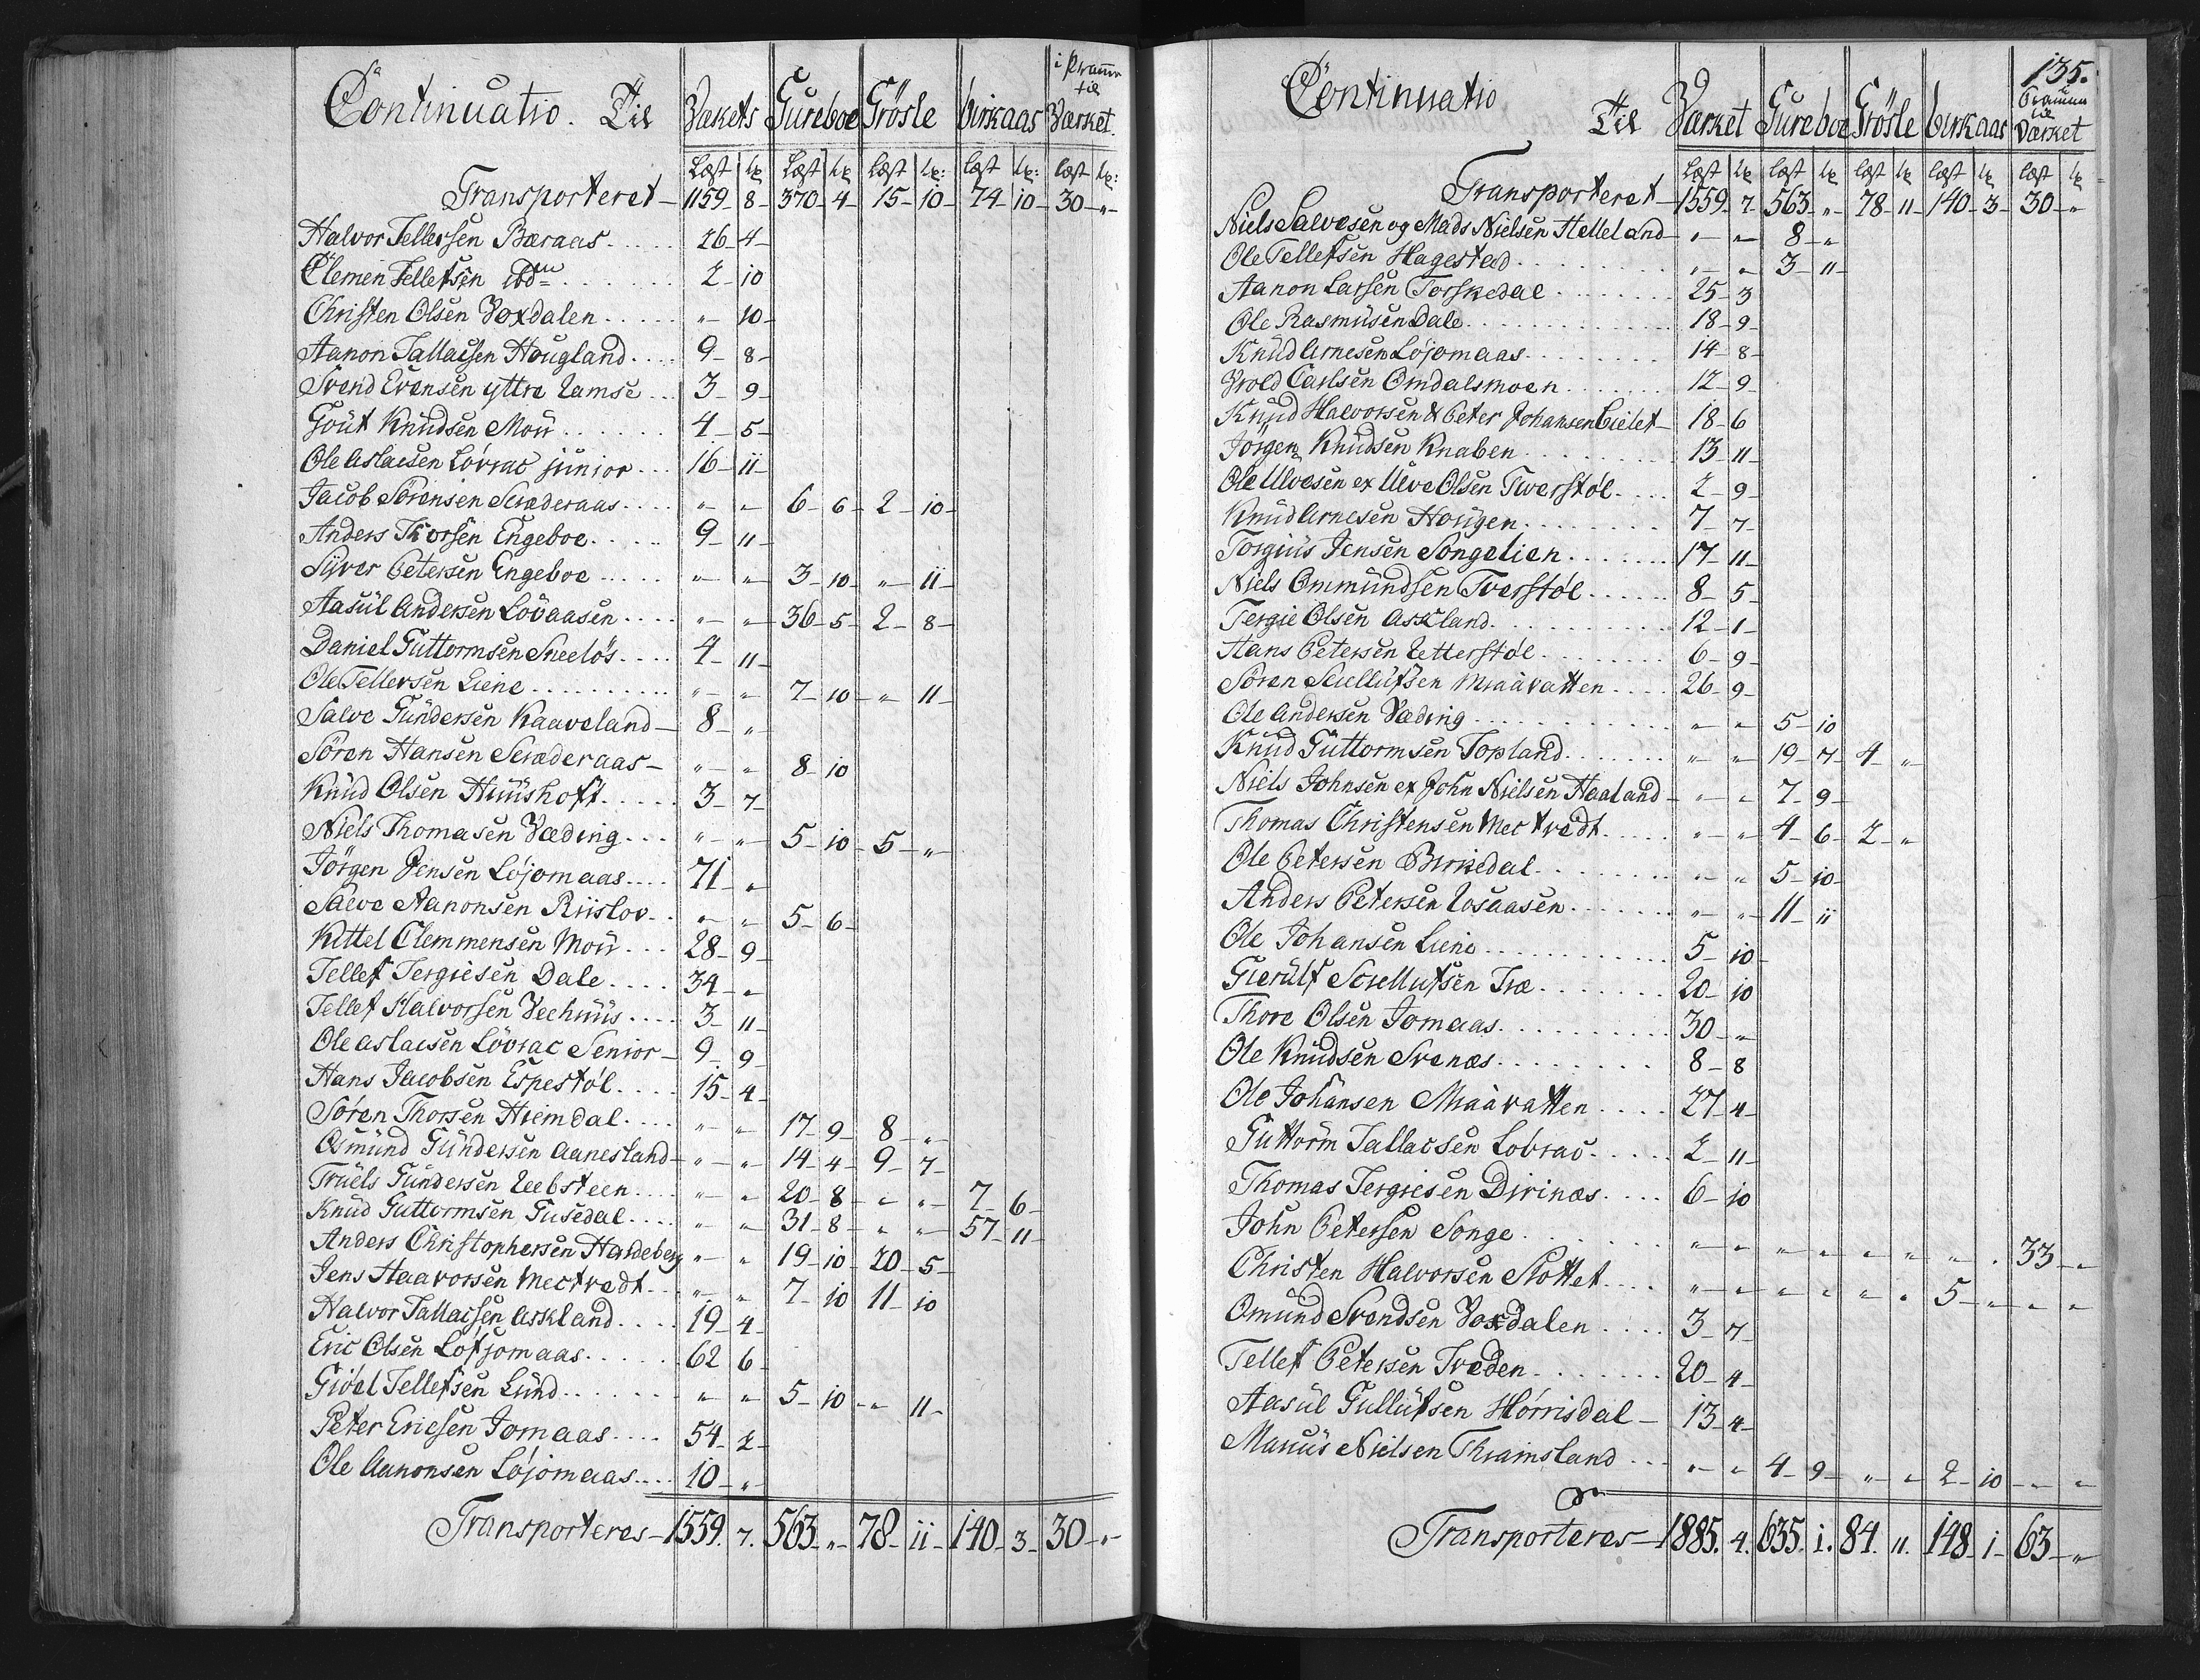 Continuatio. Til Værkets Gureboe Grösle birkaas i Pramm til Værket.
Læst Lp Læst Lp Læst Lp: Læst Lp: Læst Lp:
Transporteret – 1159 – 8 – 370 – 4 – 15 – 10 – 74 – 10 – 30 – „ –
Halvor Tellefsen Bæraas..... 26 – 4 –
Clemen Tellefsen ibdm...... 2 – 10
Christen Olsen Voxdalen..... „ – 10 –
Aanon Tallacsen Hougland.... 9 – 8 –
Svend Evensen yttre Ramse... 3 – 9 –
Gout Knudsen Mou...... 4 – 5 –
Ole Aslacsen Lövrac junior... 16 – 11 –
Jacob Sörensen Scræderaas.... „ – „ – 6 – 6 – 2 – 10 –
Anders Thorsen Engeboe..... 9 – 11 –
Syver Petersen Engeboe..... „ – „ – 3 – 10 – „ – 11 –
Aasul Andersen Lövaasen.... „ – „ – 36 – 5 – 2 – 8 –
Daniel Guttormsen Sneelös.... 4 – 11 –
Ole Tellevsen Liene.......... „ – „ – 7 – 10 – „ – 11 –
Salve Gundersen Kaaveland – 8 – „ –
Sören Hansen Scræderaas – „ – „ – 8 – 10
Knud Olsen Huushoft..... 3 – 7 –
Niels Thomasen Væding... „ – „ – 5 – 10 – 5 – „ –
Jörgen Jensen Löjomaas.... 71 – „
Salve Aanonsen Riislov.. „ – „ – 5 – 6 –
Kittel Clemmensen Mou... 28 – 9 –
Tellef Tergiesen Dale.... 34 – „
Tellef Halvorsen Veehuus.... 3 – 11 –
Ole Aslacsen Lövrac Senior – 9 – 9
Hans Jacobsen Espestöl.... 15 – 4 –
Sören Thorsen Hiemdal.... „ – „ – 17 – 9 – 8 – „
Osmund Gundersen Aanesland – „ – „ – 14 – 4 – 9 – 7 –
Truels Gundersen Reebsteen.... „ – „ 20 – 8 – „ – „ – 7 – 6 –
Knud Guttormsen Gusedal.... „ – „ 31 – 8 – „ – „ – 57 – 11 –
Anders Christophersen Hardeberg „ – „ 19 – 10 – 20 – 5 –
Jens Haavorsen Mectvedt.. „ – „ 7 – 10 11 – 10
Halvor Tallacsen Askland.... 19 – 4 –
Eric Olsen Lofjomaas..... 62 6 –
Giöel Tellefsen Lund....... „ „ 5 – 10 – „ 11 –
Peter Ericsen Jomaas.... 54 – 2 –
Ole Aanonsen Löjomaas.... 10 – „ –
Transporteres – 1559. 7. 563 – „ – 78 – 11 – 140 – 3 – 30 – „ –
135.
Continuatio Til Værket Gureboe Grösle birkaas Pramm til Værket
Læst Lp Læst Lp Læst Lp Læst Lp Læst Lp
Transporteret – 1559 – 7 – 563 – „ – 78 – 11 – 140 – 3 – 30 – „
Niels Salvesen og Mads Nielsen Helleland – „ – „ 8 – „
Ole Tellefsen Hagestad......... „ – „ 3 – 11 –
Aanon Larsen Torskedal........ 25 – 3
Ole Rasmusen Dale............. 18 – 9 –
Knud Arnesen Löjomaas......... 14 – 8 –
Wrold Carlsen Omdalsmoen....... 12 – 9 –
Knud Halvorsen & Peter Johansen Lielet – 18 – 6
Jörgen Knudsen Knaben......... 13 – 11 –
Ole Ulvesen ex Ulve Olsen Tverstöl.... 2 – 9 –
Knud Arnesen Hougen......... 7 – 7 –
Torgius Jensen Songelien....... 17 – 11 –
Niels Ommundsen Tverstöl...... 8 – 5 –
Tergie Olsen Askland........... 12 – 1 –
Hans Petersen Retterstöl........ 6 – 9 –
Sören Sciellufsen Miaavatten.... 26 – 9 –
Ole Andersen Væding............ „ – „ 5 – 10
Knud Guttormsen Topland........ „ – „ 19 – 7 – 4 – „
Niels Johnsen ex John Nielsen Haaland – „ – „ 7 – 9 –
Thomas Christensen Mectvedt..... „ – „ 4 – 6 – 2 – „
Ole Petersen Birkedal......... „ – „ 5 – 10 –
Anders Petersen Rosaasen....... „ – „ 11 – 11
Ole Johansen Liene............ 5 – 10 –
Gierulf Sciellufsen Træ....... 20 – 10
Thore Olsen Jomaas.......... 30 – „
Ole Knudsen Svenæs......... 8 – 8
Ole Johansen Miaavatten.... 27 – 4 –
Guttorm Tallacsen Lobrac..... 2 – 11 –
Thomas Tergiesen Dirinæs.... 6 – 10
John Petersen Songe........ „ – „ „ „ „ „ „ „ 33 – „
Christen Halvorsen Slottet.... „ – „ „ „ „ „ 5 – „ „ „
Omund Svendsen Voxdalen.... 3 – 7 –
Tellef Petersen Træden....... 20 – 4 –
Aasul Gullufsen Hörrisdal – 13 – 4 –
Marcus Nielsen Thraimsland... „ – „ 4 – 9 – „ – „ 2 – 10 – „ – „
Transporteres – 1885. 4. 635. 1. 84. 11. 148 – 1 – 63 – „